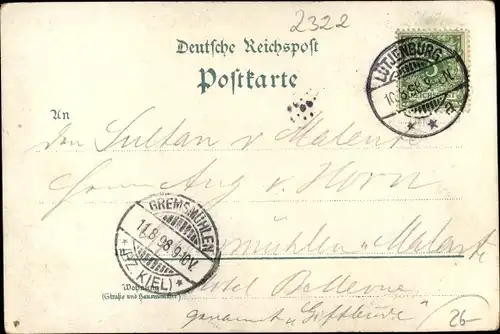 2322
Deutsche Reichspost
Postkarte
LÜTJENBURG
10.8.98
a.
An
den Sultan v Malente
Herrn Aug v. Horn
GREMSMÜHLEN
11.8.98 9-10V.
* (BZ. KIEL) *
mühlen Malente
Hotel Bellevue
Wohnung
(Straße und Hausnummer)
genannt "Giftbude"
26-